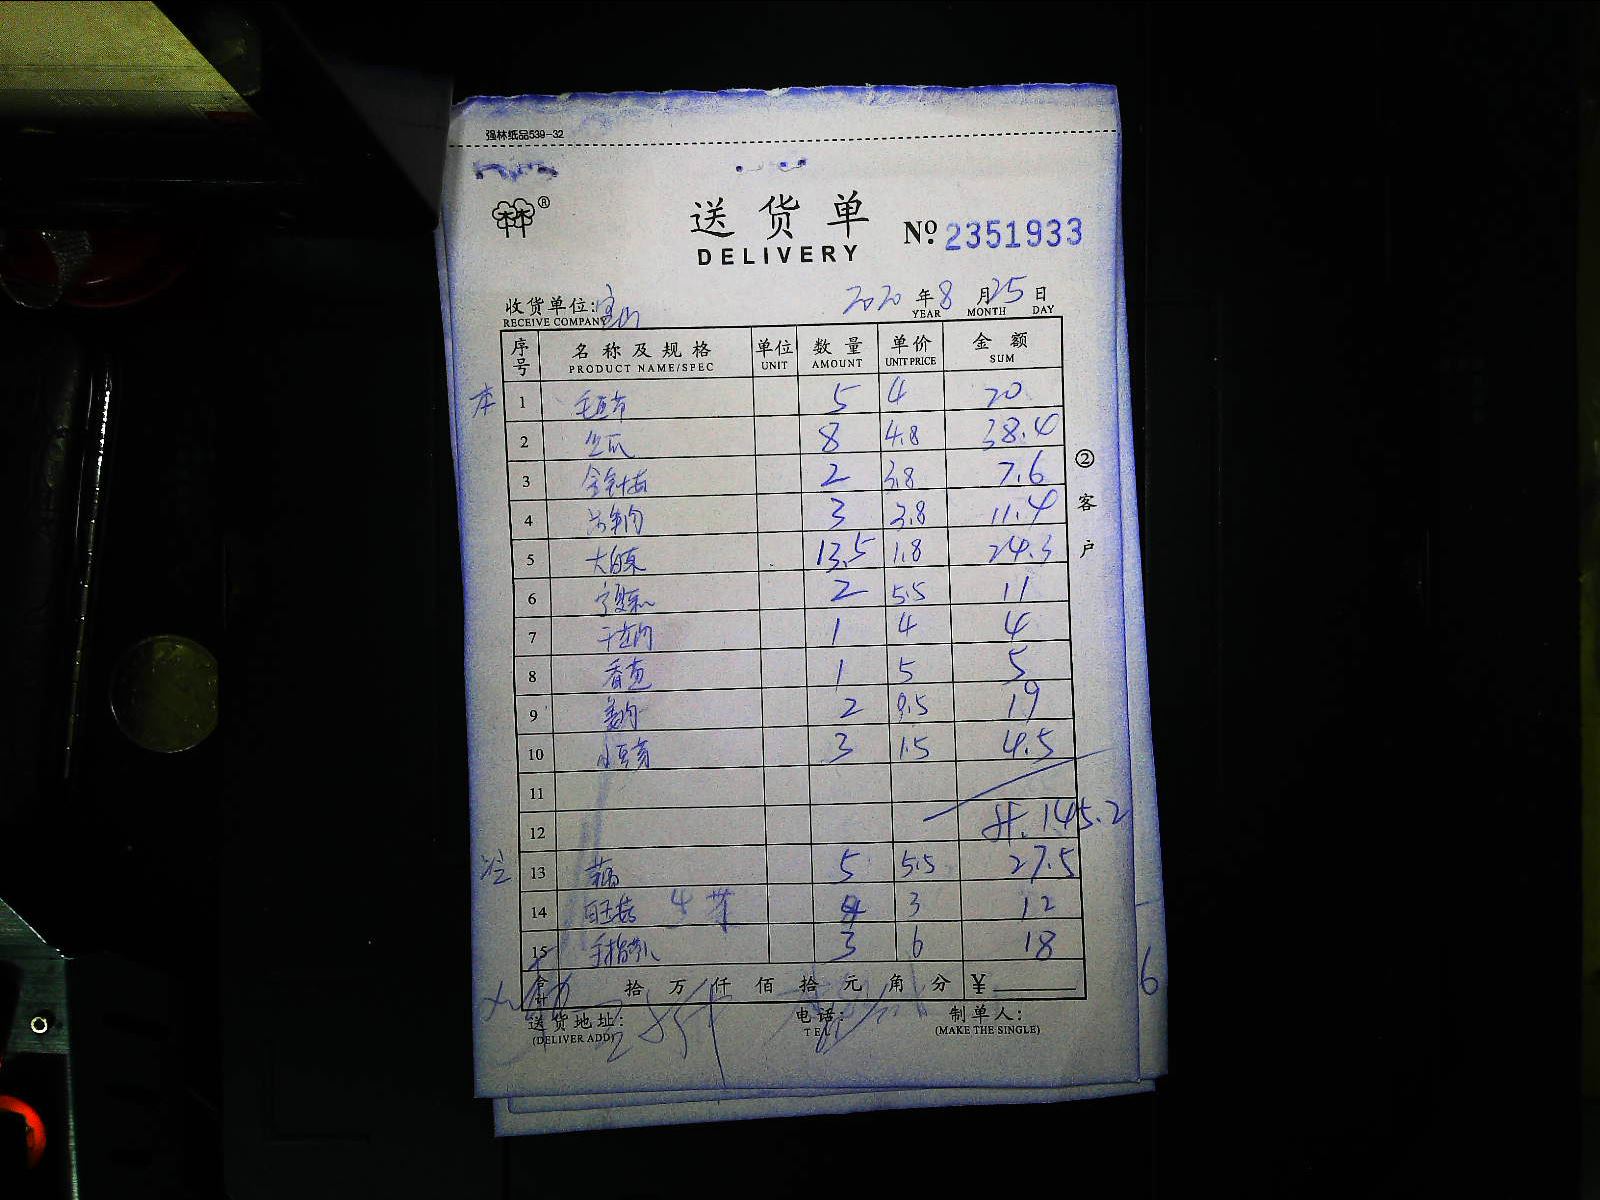 强林纸品539-32
®
送货单 No 2351933
DELIVERY
收货单位: 2020年8月25日
RECEIVE COMPANY YEAR MONTH DAY
序号 名称及规格 单位 数量 单价 金额
PRODUCT NAME/SPEC UNIT AMOUNT UNIT PRICE SUM
本 1 毛豆节 5 4 20
2 8 4.8 38.4
3 金针菇 2 3.8 7.6
4 3 3.8 11.4
5 大白菜 13.5 1.8 24.3
6 2 5.5 11
7 1 4 4
8 香葱 1 5 5
9 2 9.5 19
10 小豆芽 3 1.5 4.5
11
12 共.145.2
13 藕 5 5.5 27.5
14 白玉菇 生菜 4 3 12
15 3 6 18
合计 拾万仟佰拾元角分 ¥
送货地址: 电话: 制单人:
(DELIVER ADD) TEL (MAKE THE SINGLE)
②客户
6